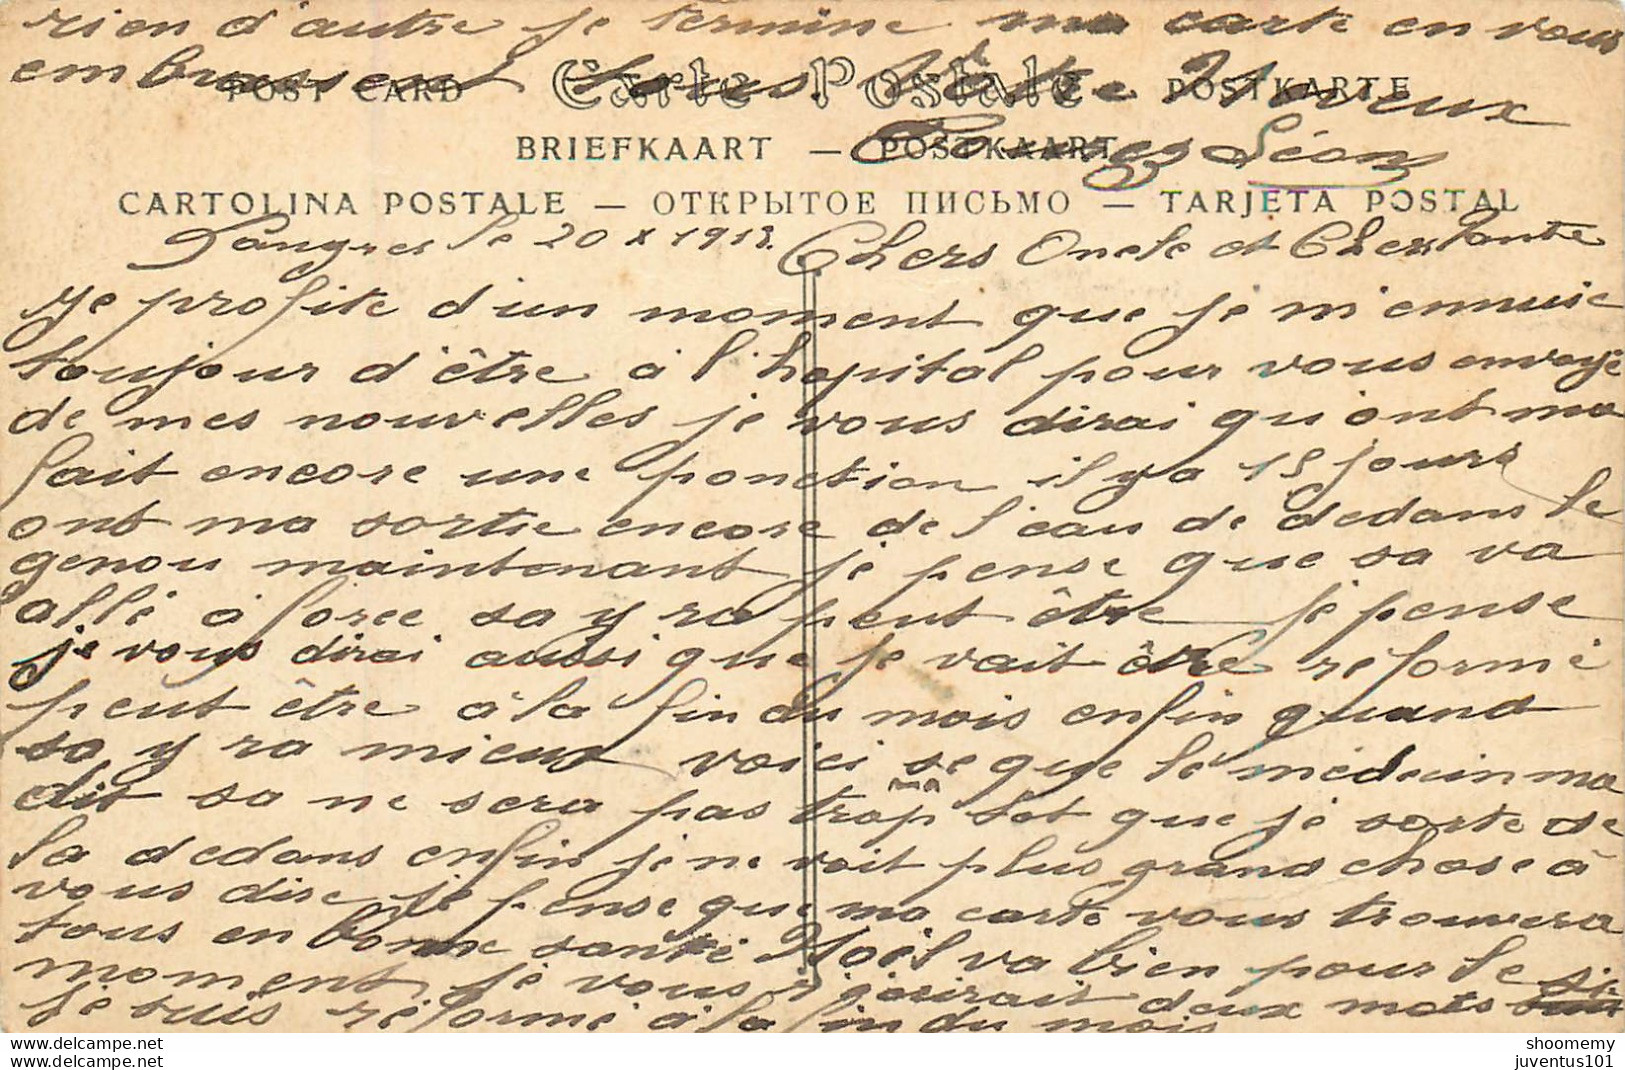 rien d'autre je termine ma carte en vous
embrassent tous Votre Neveux
POST CARD Carte Postale POSTKARTE
Léon
BRIEFKAART — POSTKAART
CARTOLINA POSTALE — ОТКРЫТОЕ ПИСЬМО — TARJETA POSTAL
Langres le 20 X 1913. Chers Oncle et Chers Tante
Je profite d'un moment que je m'ennuie
toujour d'être a l'hopital pour vous envoye
de mes nouvelles je vous dirai qu'ont ma
fait encore une ponction il y a 15 jours
ont ma sortie encore de l'eau de dedans le
genou maintenant je pense que sa va
allé a force sa y ra peut être je pense
je vous dirai aussi que je vait être reformé
peut être a la fin du mois enfin quand
sa y ra mieux voici se que le médecin ma
dit sa ne sera pas trop tot que je sorte de
la dedans enfin je ne voit plus grand chose à
vous dire je pense que ma carte vous trouvera
tous en bonne santé Noël va bien pour le
moment je vous deux mots si
je suis reformé a la fin du mois
shoomemy
www.delcampe.net juventus101